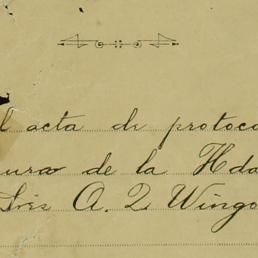 l acta de protoco
ura de la Hda
Luis A. Q Wingo